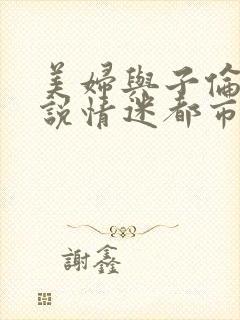 美婦與子倫
說情迷都市
謝鑫